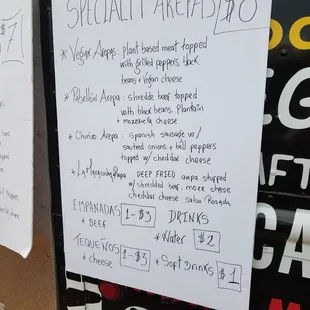 SPECIALTY AREPAS
* Vegan Arepas: plant based meat topped
with grilled peppers, black
beans + Vegan cheese
* Pabellon Arepa: shredde beef topped
with black beans. Plantain
+ mozzarella cheese
* Chorizo Arepa: Spanish sausage w/
sauteed onions + bell peppers
topped w/ cheddar cheese
DEEP FRIED arepa stuffed
w/ shredded beef. mozz cheese
cheddar cheese salsa Rosada
EMPANADAS 1-$3
* BEEF
DRINKS
* Water $2
TEQUEÑOS 1-$3
* cheese
* Soft Drinks $1
7